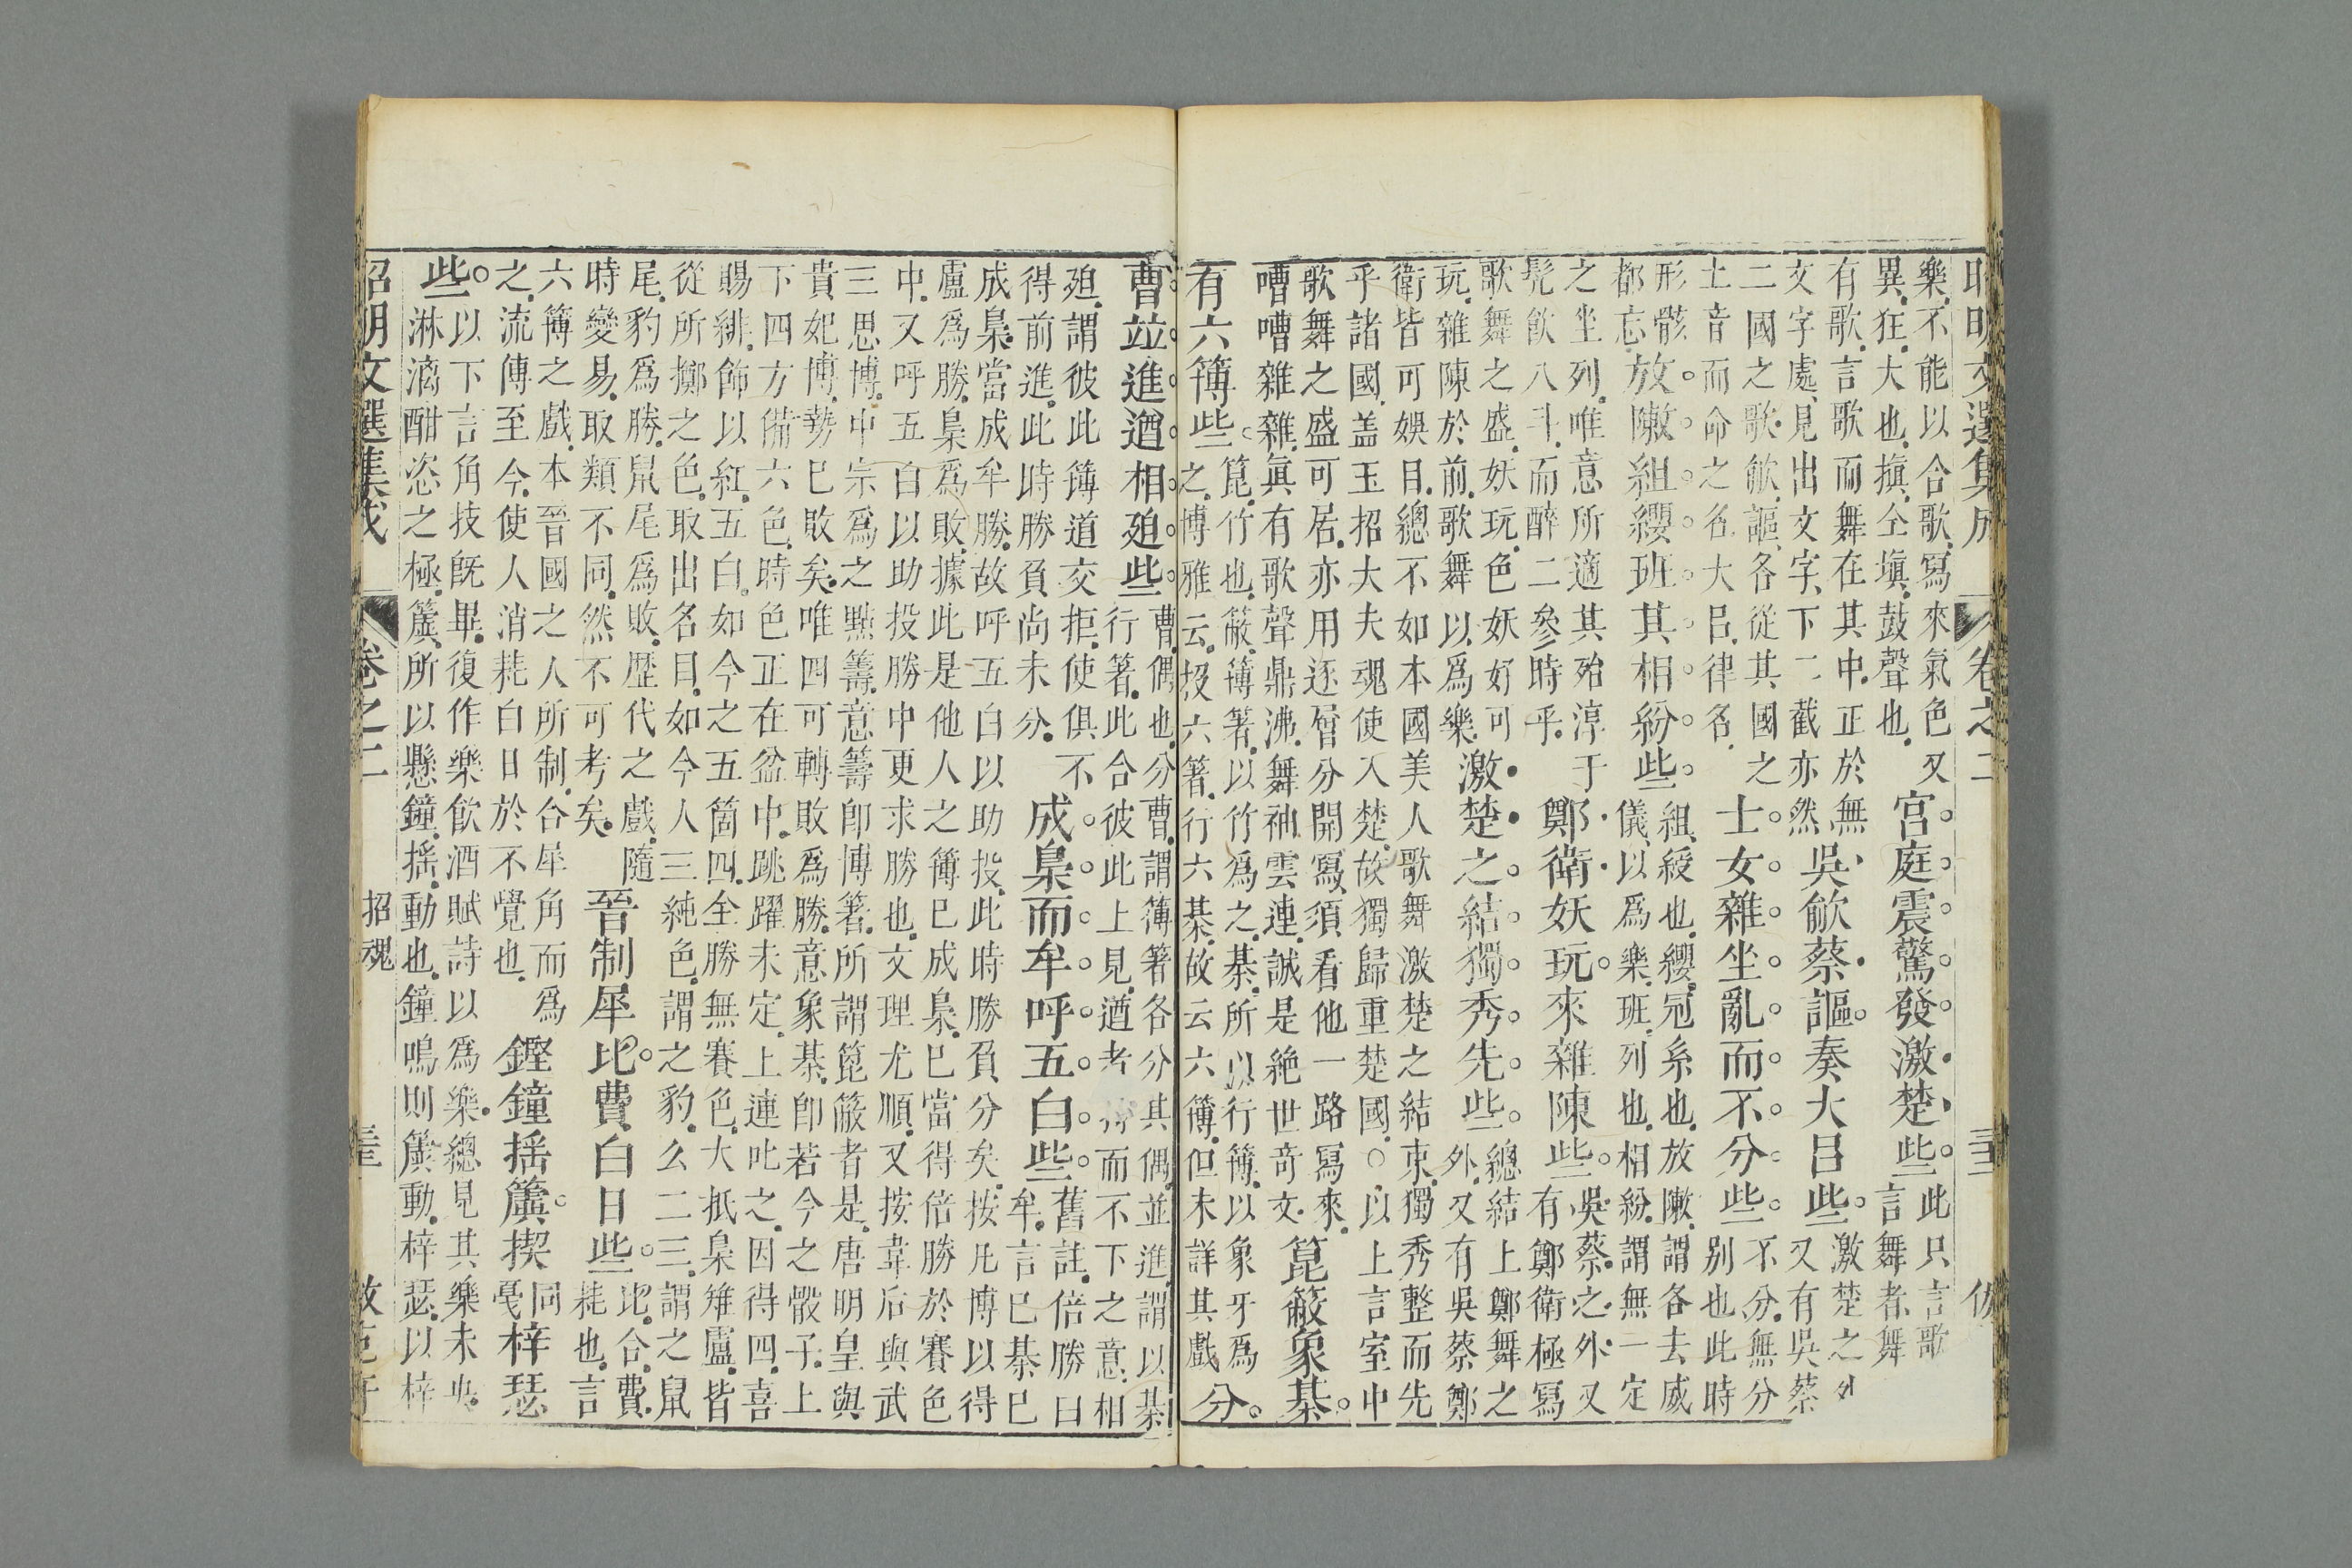 昭明文選集成 卷之二
樂不能以合歌寫來氣色又
異狂大也搷仝塡鼓聲也
宮庭震驚發激楚些
此只言歌
言舞者舞
有歌言歌而舞在其中正於無
文字處見出文字下一截亦然
吳歈蔡謳奏大呂些
激楚之外
又有吳蔡
二國之歌歈謳各從其國之
土音而命之名大呂律名
士女雜坐亂而不分些
不分無分
别也此時
形骸
都忘
放敶組纓班其相紛些
組綬也纓冠系也放敶謂各去威
儀以爲樂班列也相紛謂無一定
之坐列唯意所適其殆淳于
髡飮八斗而醉二參時乎
鄭衛妖玩來雜陳些
吳蔡之外又
有鄭衛極寫
歌舞之盛妖玩色妖好可
玩雜陳於前歌舞以爲樂
激楚之結獨秀先些
總結上鄭舞之
外又有吳蔡鄭
衛皆可娛目總不如本國美人歌舞激楚之結束獨秀整而先
乎諸國盖玉招大夫魂使入楚故獨歸重楚國○以上言室中
歌舞之盛可居亦用逐層分開寫須看他一路寫來
嘈嘈雜雜眞有歌聲鼎沸舞袖雲連誠是絶世奇文
箟蔽象棊
有六簙些
箟竹也蔽簙箸以竹爲之棊所以行簙以象牙爲
之博雅云投六箸行六棊故云六簙但未詳其戲
分
曹竝進遒相廹些
曹偶也分曹謂簙箸各分其偶並進謂以棊
行箸此合彼此上見遒考而不下之意相
廹謂彼此簙道交拒使俱不
得前進此時勝負尚未分
成梟而牟呼五白些
舊註倍勝曰
牟言已棊已
成梟當成牟勝故呼五白以助投此時勝負分矣按凡博以得
盧爲勝梟爲敗據此是他人之簙已成梟已當得倍勝於賽色
中又呼五白以助投勝中更求勝也文理尤順又按韋后與武
三思博中宗爲之點籌意籌卽博箸所謂箟蔽者是唐明皇與
貴妃博勢已敗矣唯四可轉敗爲勝意象棊卽若今之骰子上
下四方備六色時色正在盆中跳躍未定上連叱之因得四喜
賜緋飾以紅五白如今之五箇四全勝無賽色大抵梟雉盧皆
從所擲之色取出名目如今人三純色謂之豹么二三謂之鼠
尾豹爲勝鼠尾爲敗歴代之戲隨
時變易取類不同然不可考矣
晉制犀比費白日些
比合費
耗也言
六簙之戲本晉國之人所制合犀角而爲
之流傳至今使人消耗白日於不覺也
鏗鐘搖簴揳
同
戞
梓瑟
些
以下言角技旣畢復作樂飮酒賦詩以爲樂總見其樂未央
淋漓酣恣之極簴所以懸鐘搖動也鐘鳴則簴動梓瑟以梓
昭明文選集成 卷之二 招魂